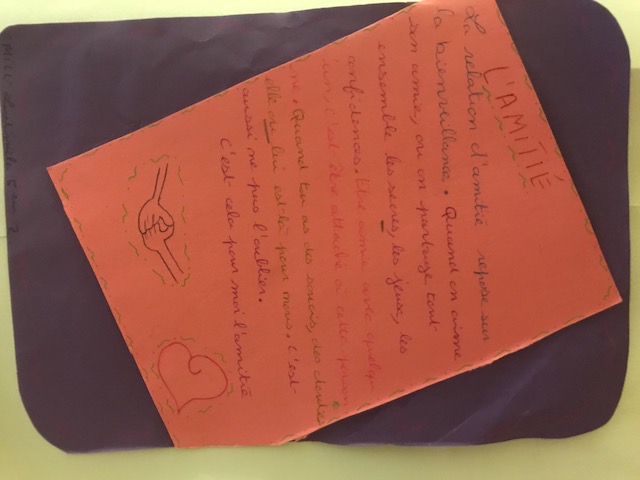 L'AMITIÉ
La relation d'amitié repose sur
la bienveillance. Quand on aime
son amie, ou on partage tout
ensemble les secres, les jeux, les
confidences. Etre amie avec quelqu
un, c'est être attaché à cette person
ne. Quand tu as des soucis, des doutes
elle ou lui est là pour nous. C'est
aussi ne pas l'oublier.
C'est cela pour moi l'amitié